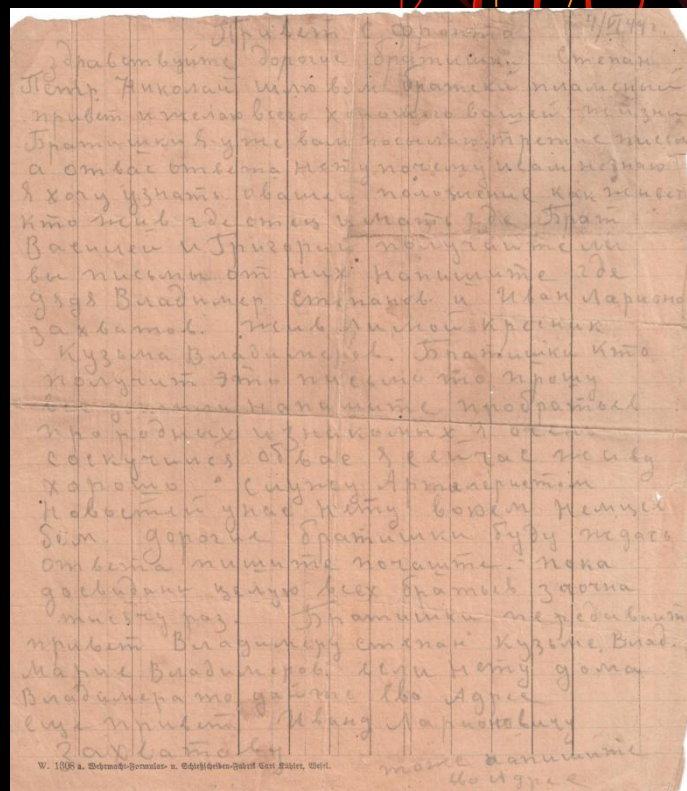 Привет с фронта 4/VI 44 г.
здравствуйте дорогие братишки Степан
Петр Николай шлю вам братский пламений
привет и желаю всего хорошого вашей жизни
Братишки я уже вам посылаю третие письмо
а от вас ответа нету почему и сам незнаю
я хочу узнать о вашем положение как живете
кто жив где отец и мать где Брат
Василей и Григорий получаите ли
вы письмы от них напишите где
дядя Владимер Степанов и Иван Ларионо
захватов. жив ли мой кресник
Кузьма Владимеров. Братишки кто
получит это письмо то прошу
напишите пробратьев
продродных и знакомых я очень
соскучился обвас я сейчас живу
хорошо служу Артилеристом
новостей унас нету воюем немцев
бем. дорогие братишки буду ждать
ответа пишите почаште. пока
досвидания целую всех братьев заочна
тысячу раз. Братишки передавайте
привет Владимеру степан Кузьме, Влад.
Марие Владимеров. если нету дома
Владимера то дайте ево Адрес
еще привет Ивану Ларионовичу
Захватову
тоже напишите
ево Адрес
W. 1308 a. Wehrmacht-Formular- u. Schießscheiben-Fabrik Carl Kühler, Wesel.